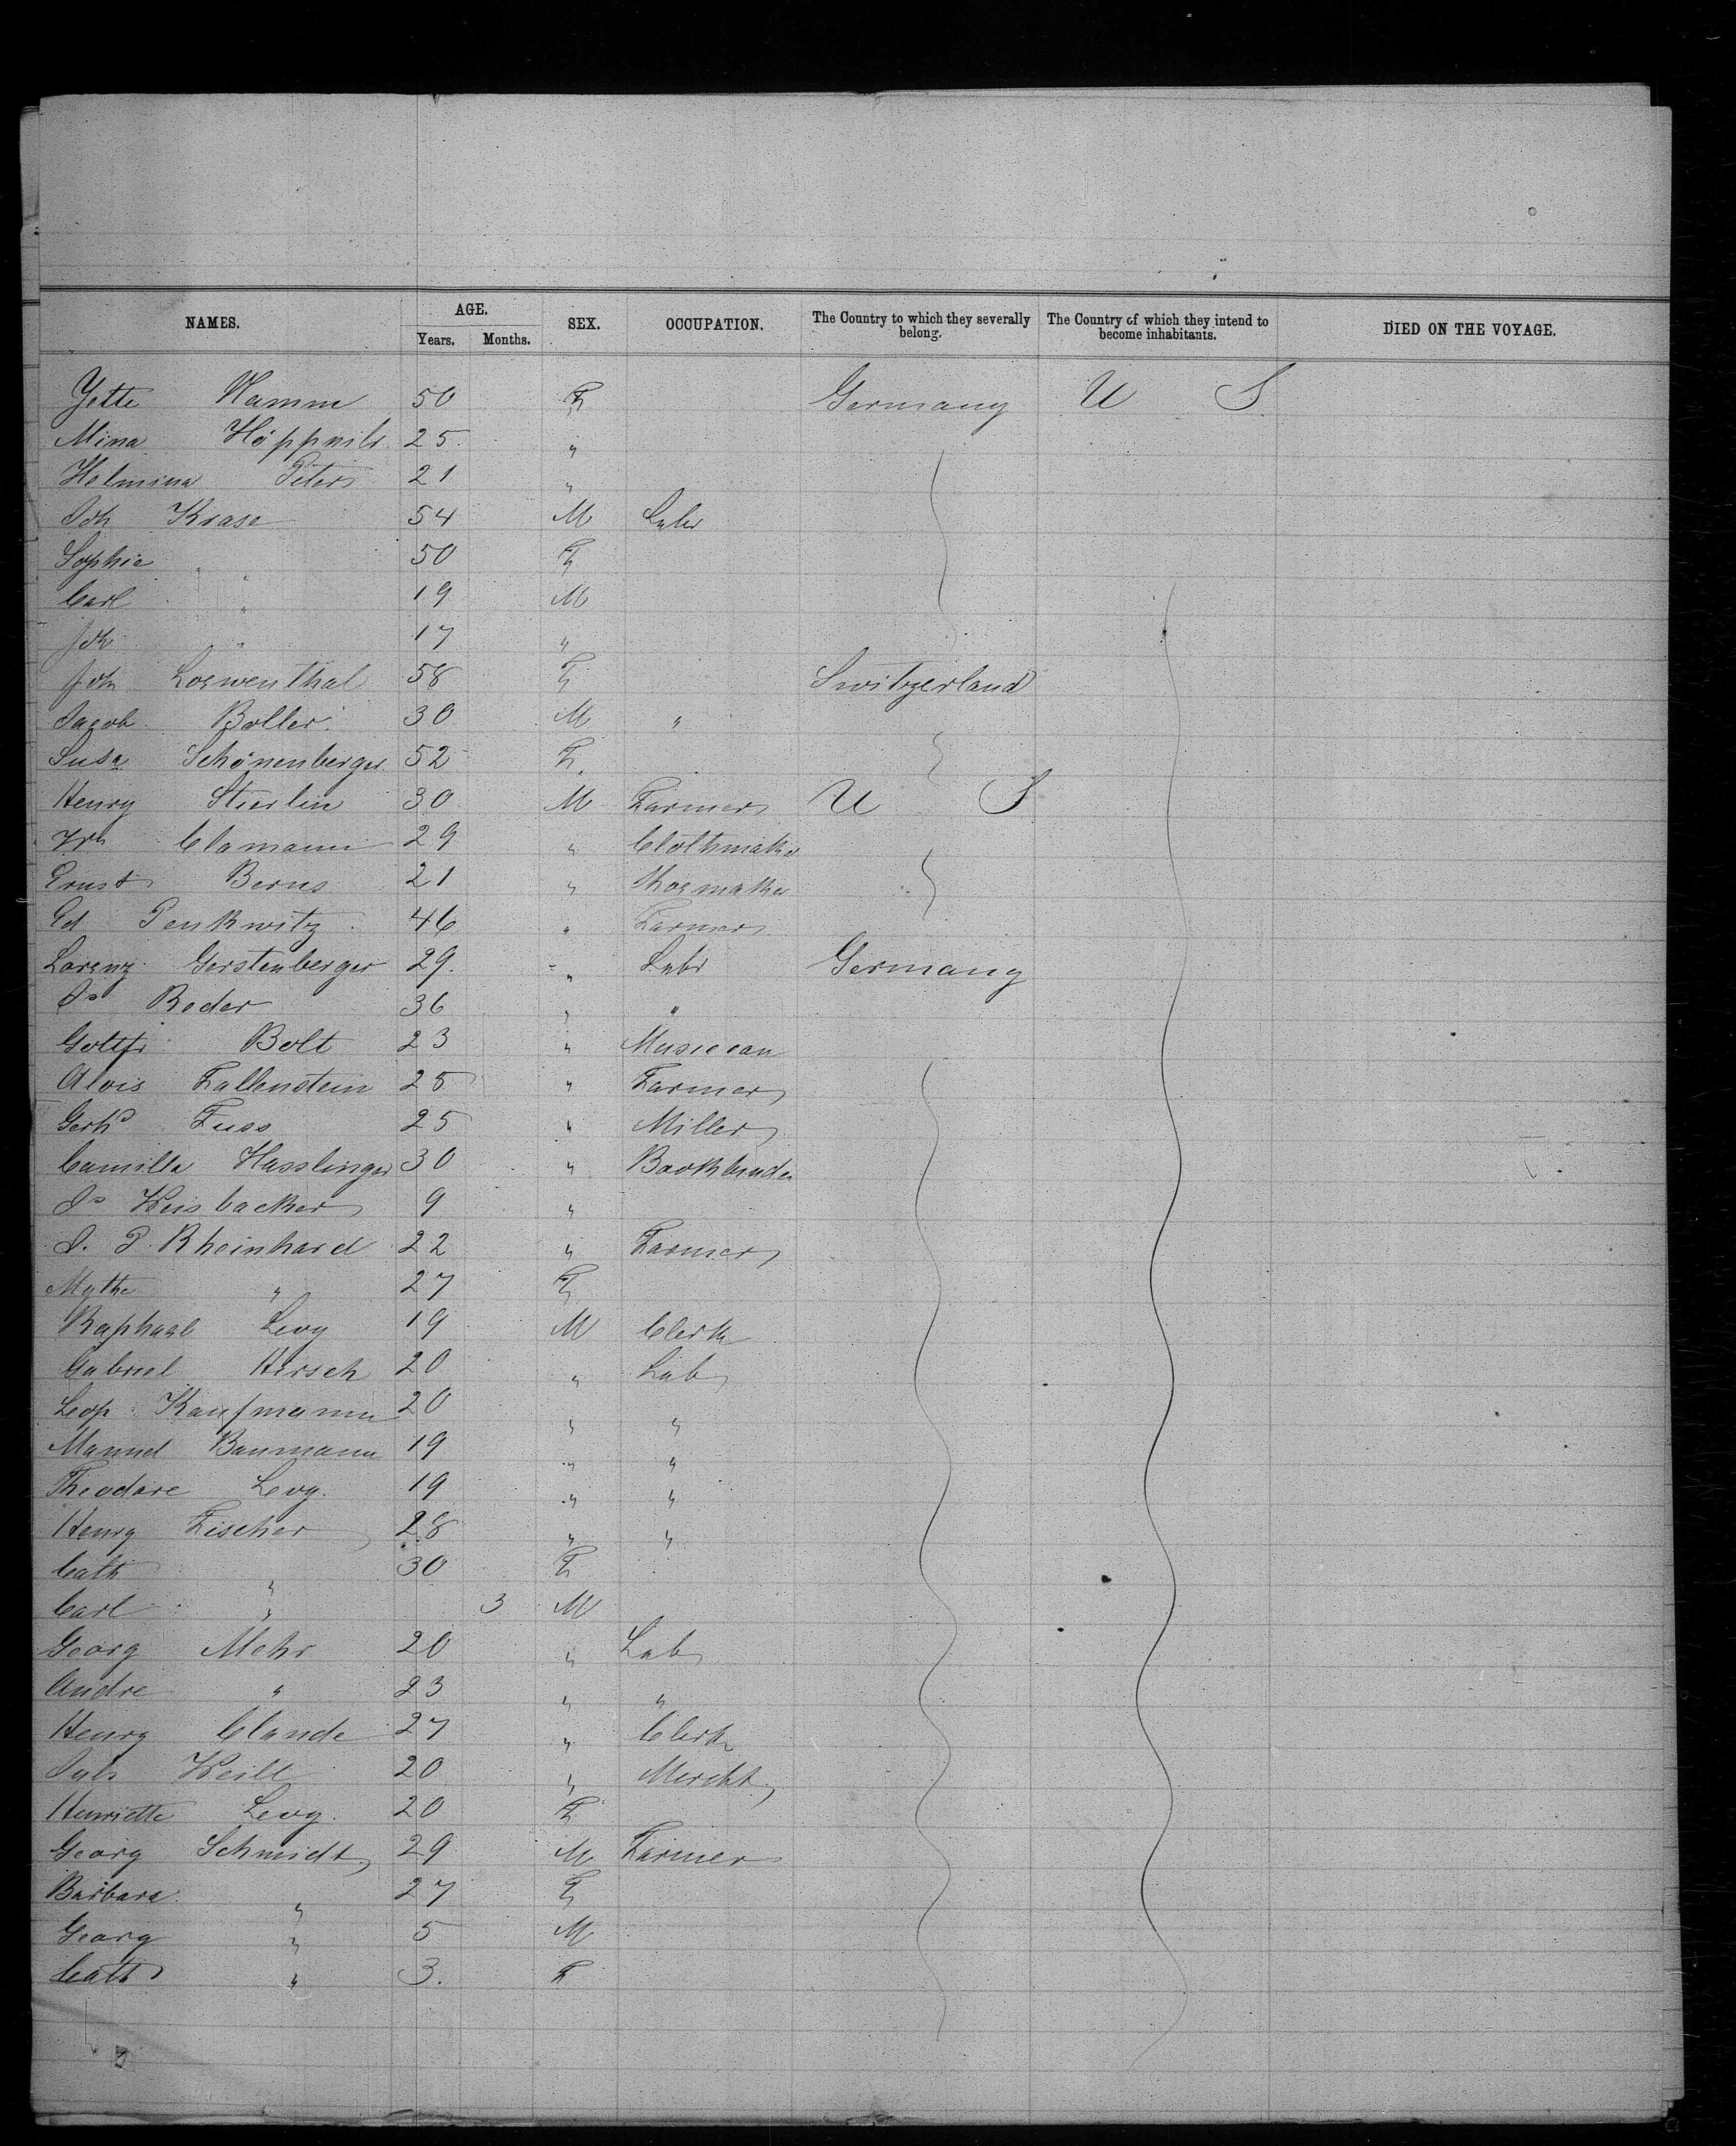 NAMES. AGE. SEX. OCCUPATION. The Country to which they severally belong. The Country of which they intend to become inhabitants. DIED ON THE VOYAGE.
Years. Months.
Yette Hamm 50 F Germany U S
Mina 25 "
Helmina Peters 21 "
Joh Krase 54 M Labr
Sophie " 50 F
Carl " 19 M
Joh " 17 "
Joh Loewenthal 58 F Switzerland
Jacob Boller 30 M "
Susa Schönenberger 52 F
Henry Stierlin 30 M Farmer U S
Joh Clamann 29 " Clothmaker
Ernst Berns 21 " Shoemaker
Ed Penkwitz 46 " Farmer
Lorenz Gerstenberger 29. " Labr Germany
Jo Roder 36 " "
Gottfr Bolt 23 " Musiccan
Alois Fallenstein 25 " Farmer
Gerhd Fuss 25 " Miller
Camilla Hasslinger 30 " Bookbinder
Jo Weisbacker 9 "
J. P. Rheinhard 22 " Farmer
Mythe " 27 F
Raphael Levy 19 M Clerk
Gabriel Hirsch 20 " Lab
Leop Kaufmann 20 " "
Manuel Baumann 19 " "
Theodore Levy. 19 " "
Henry Fischer 28 " "
Cath " 30 F
Carl " 3 M
Georg Mehr 20 " Lab
Andre " 23 " "
Henry Claude 27 " Clerk
Juls Weill 20 " Mercht
Henriette Levy. 20 F
Georg Schmidt 29 M Farmer
Barbara " 27 F
Georg " 5 M
Cath " 3. F